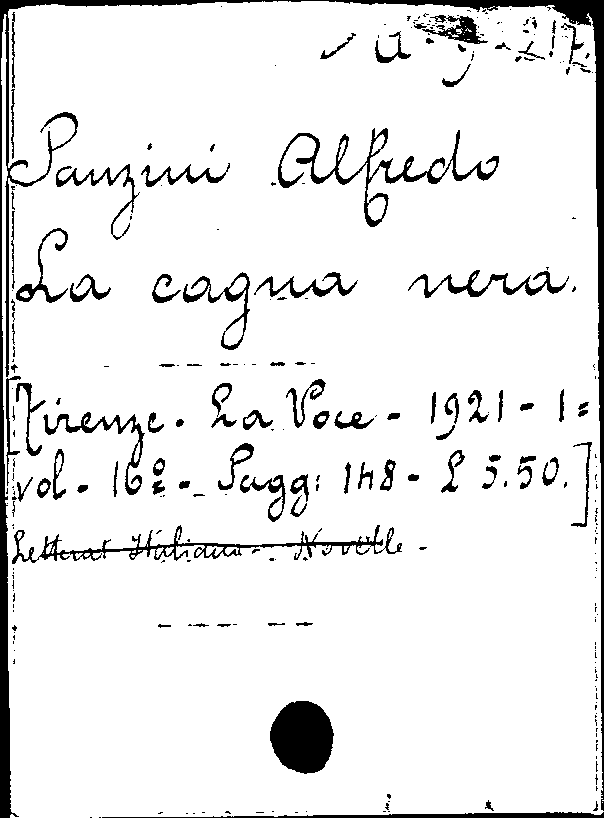 Panzini Alfredo
La cagna nera.
[Firenze. La Voce - 1921 - 1=
vol. - 16º - Pagg: 148 - L 5.50.]
Letterat Italiana - Novelle -